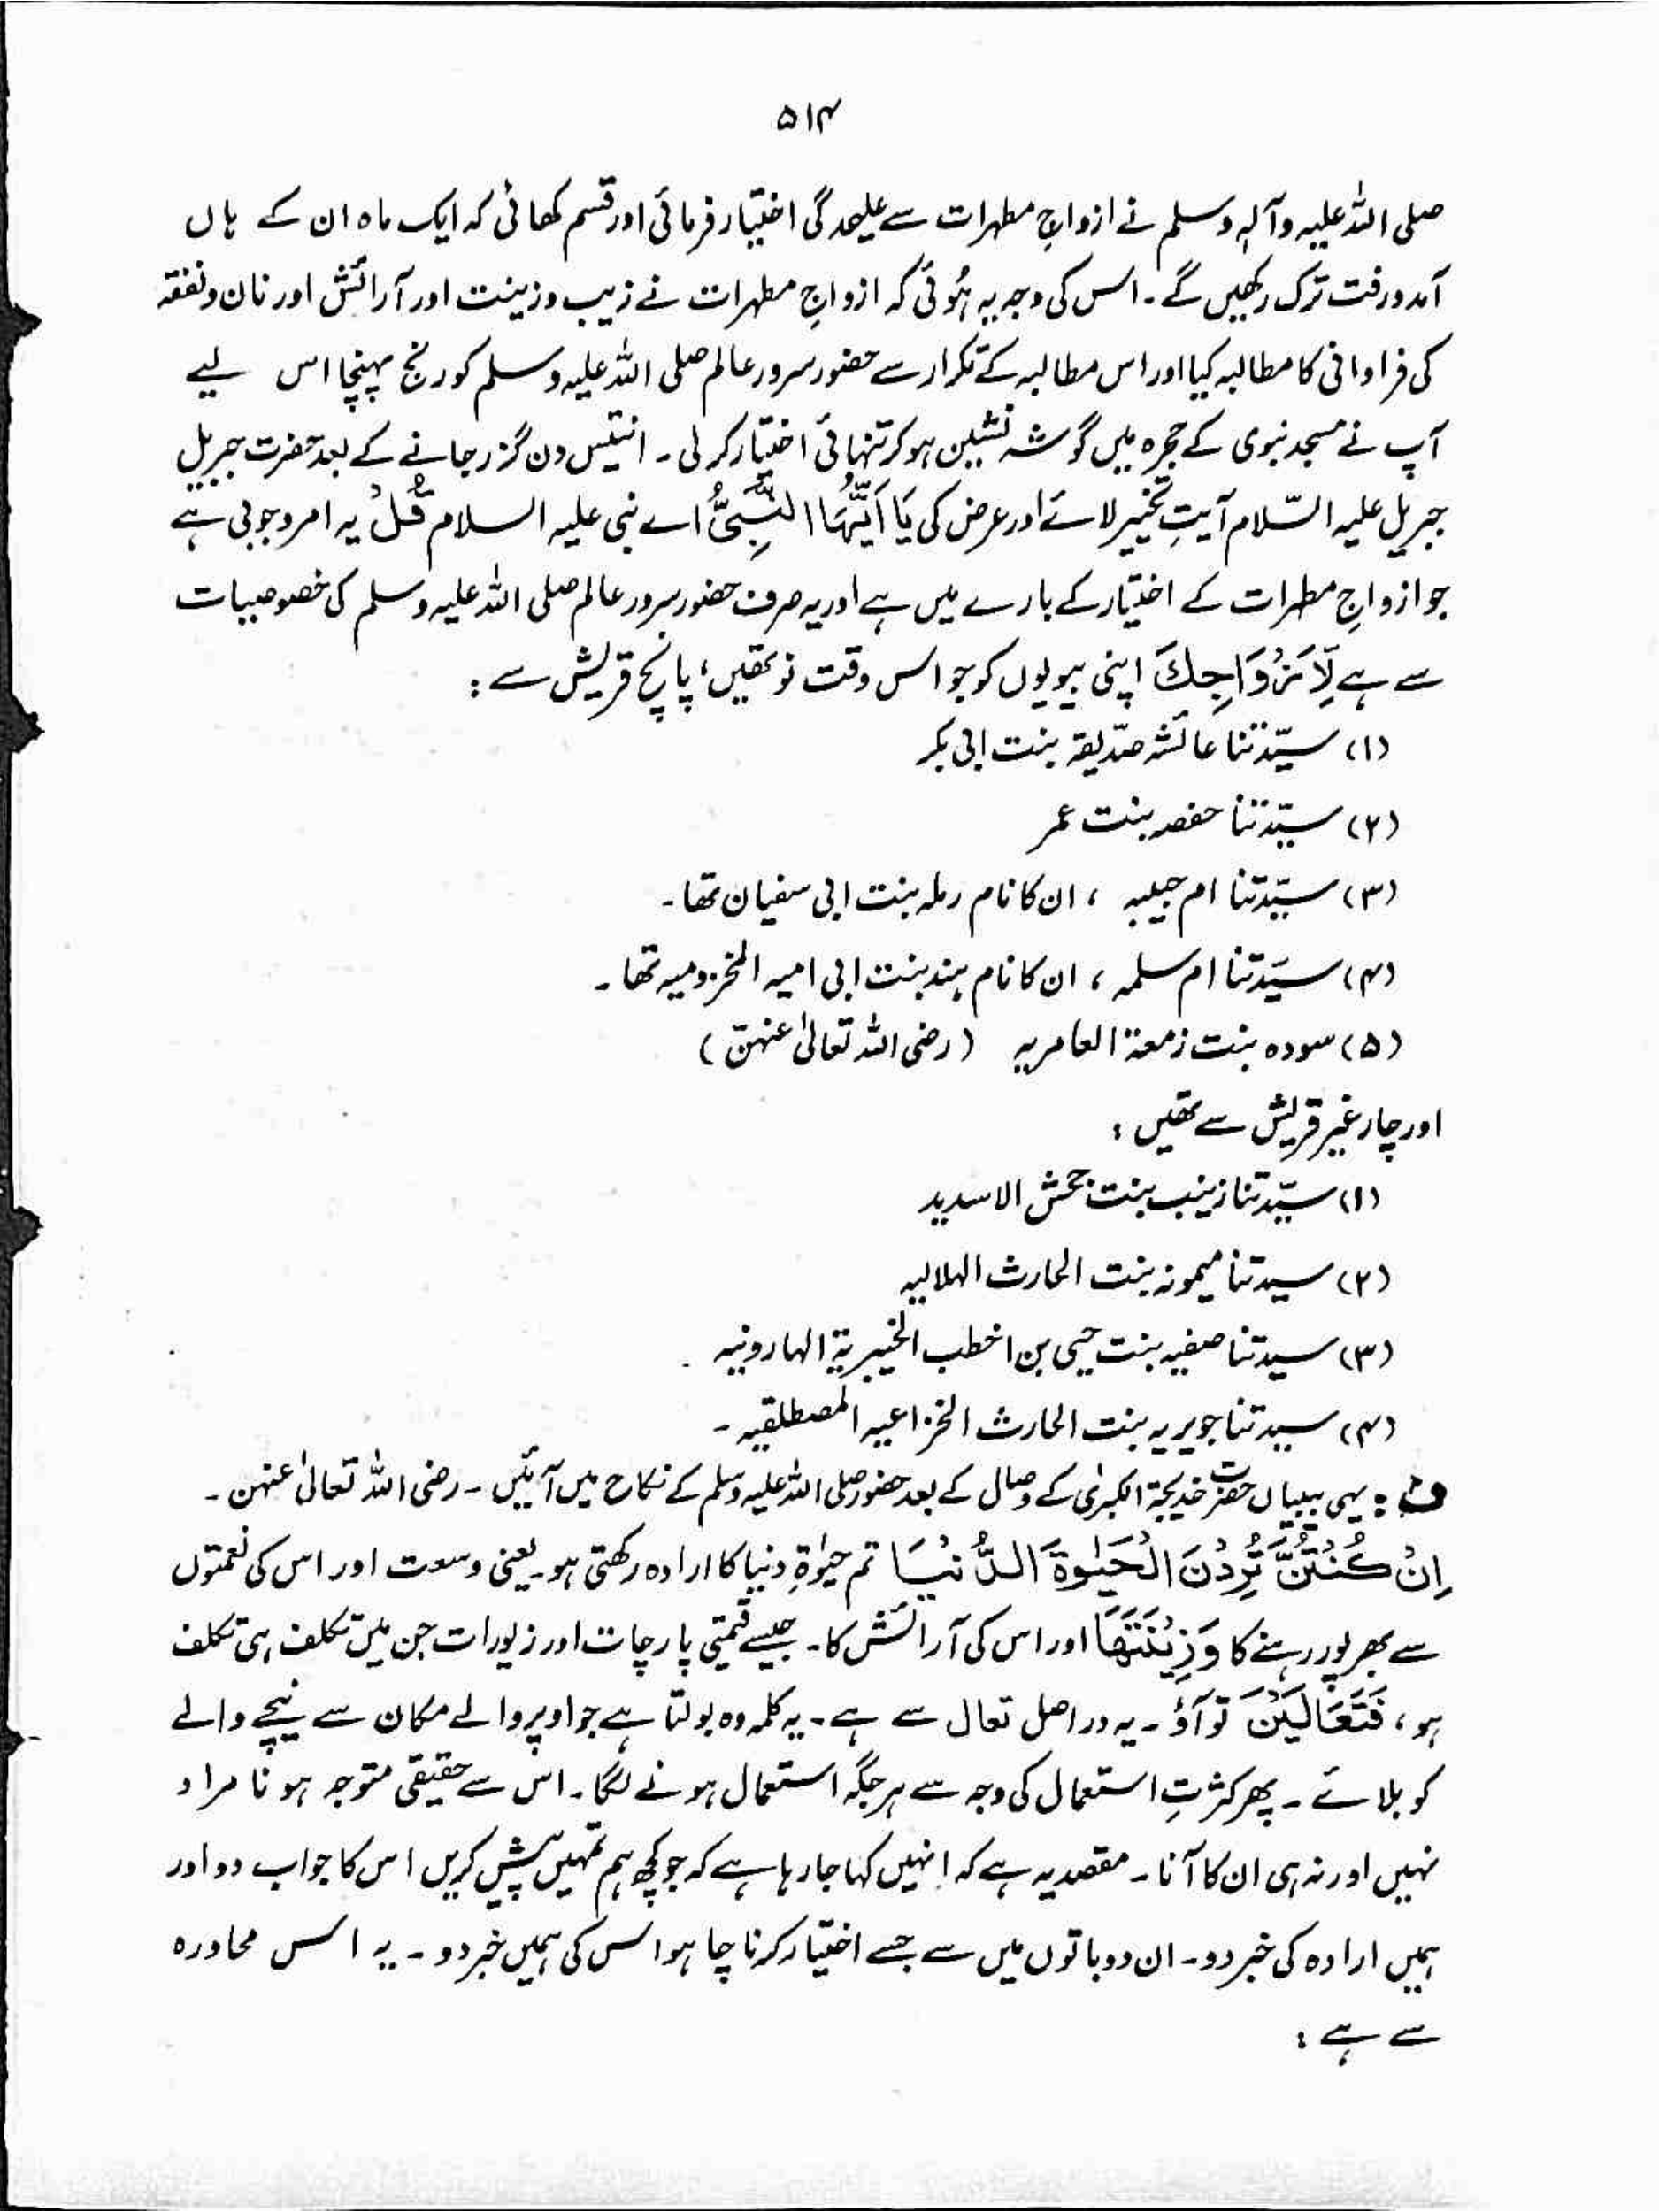 ۵۱۴
صلی اللہ علیہ وآلہٖ وسلم نے ازواجِ مطہرات سے علیحدگی اختیار فرمائی اور قسم کھائی کہ ایک ماہ ان کے ہاں
آمد ورفت ترک رکھیں گے۔ اس کی وجہ یہ ہُوئی کہ ازواجِ مطہرات نے زیب و زینت اور آرائش اور نان و نفقہ
کی فراوانی کا مطالبہ کیا اور اس مطالبہ کے تکرار سے حضور سرور عالم صلی اللہ علیہ وسلم کو رنج پہنچا اس لیے
آپ نے مسجد نبوی کے حجرہ میں گوشہ نشین ہو کر تنہائی اختیار کرلی۔ انتیس دن گزر جانے کے بعد حضرت جبریل
جبریل علیہ السّلام آیتِ تخییر لائے اور عرض کی یَا اَیُّہَا النَّبِیُّ اے نبی علیہ السلام قُلْ یہ امر وجوبی ہے
جو ازواجِ مطہرات کے اختیار کے بارے میں ہے اور یہ صرف حضور سرور عالم صلی اللہ علیہ وسلم کی خصوصیات
سے ہے لِّاَزْوَاجِكَ اپنی بیویوں کو جو اس وقت نو تھیں، پانچ قریش سے :
(۱) سیّدتنا عائشہ صدّیقہ بنت ابی بکر
(۲) سیّدتنا حفصہ بنت عمر
(۳) سیّدتنا ام حبیبہ ، ان کا نام رملہ بنت ابی سفیان تھا۔
(۴) سیّدتنا ام سلمہ ، ان کا نام ہند بنت ابی امیہ المخزومیہ تھا۔
(۵) سودہ بنت زمعۃ العامریہ (رضی اللہ تعالیٰ عنہنّ)
اور چار غیر قریش سے تھیں :
(۱) سیّدتنا زینب بنت جحش الاسدید
(۲) سیدتنا میمونہ بنت الحارث الہلالیہ
(۳) سیدتنا صفیہ بنت حیی بن اخطب الخیبریۃ الہارونیہ
(۴) سیدتنا جویریہ بنت الحارث الخزاعیہ المصطلقیہ۔
ف : یہی بیبیاں حضرت خدیجۃ الکبریٰ کے وصال کے بعد حضور صلی اللہ علیہ وسلم کے نکاح میں آئیں۔ رضی اللہ تعالیٰ عنہن۔
اِنْ كُنْتُنَّ تُرِدْنَ الْحَیٰوةَ الدُّنْیَا تم حیٰوۃِ دنیا کا ارادہ رکھتی ہو۔ یعنی وسعت اور اس کی نعمتوں
سے بھرپور رہنے کا وَزِیْنَتَهَا اور اس کی آرائش کا۔ جیسے قیمتی پارچات اور زیورات جن میں تکلف ہی تکلف
ہو، فَتَعَالَیْنَ تو آؤ۔ یہ دراصل تعال سے ہے۔ یہ کلمہ وہ بولتا ہے جو اوپر والے مکان سے نیچے والے
کو بلائے۔ پھر کثرتِ استعمال کی وجہ سے ہر جگہ استعمال ہونے لگا۔ اس سے حقیقی متوجہ ہونا مراد
نہیں اور نہ ہی ان کا آنا۔ مقصد یہ ہے کہ انہیں کہا جا رہا ہے کہ جو کچھ ہم تمہیں پیش کریں اس کا جواب دو اور
ہمیں ارادہ کی خبر دو۔ ان دو باتوں میں سے جسے اختیار کرنا چاہو اس کی ہمیں خبر دو۔ یہ اس محاورہ
سے ہے :